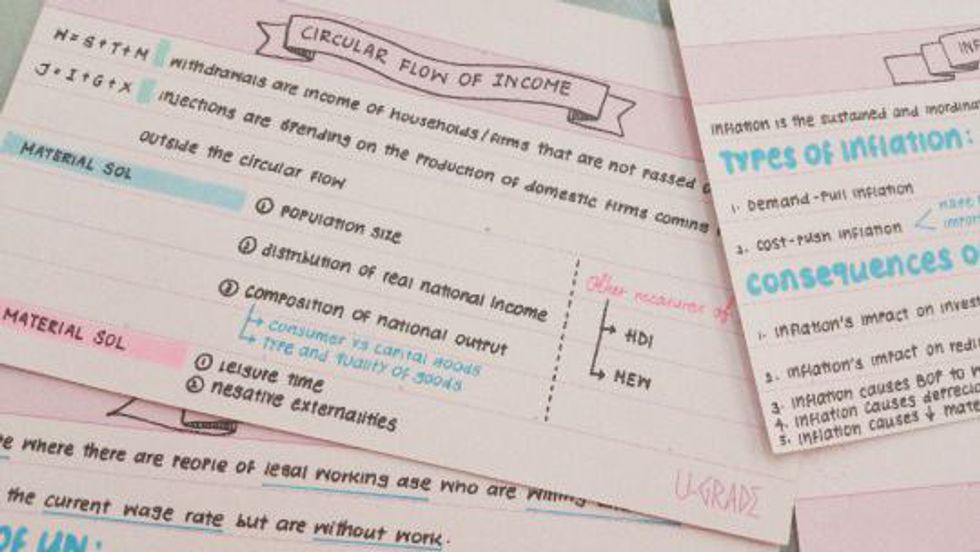 CIRCULAR FLOW OF INCOME
W = S + T + M withdrawals are income of households/firms that are not passed
J = I + G + X injections are spending on the production of domestic firms coming
outside the circular flow
MATERIAL SOL
① population size
② distribution of real national income
③ composition of national output
consumer vs capital goods
type and quality of goods
MATERIAL SOL
① leisure time
② negative externalities
other measures of
HDI
MEW
U-GRADE
INF
inflation is the sustained and inordina
TYPES OF INFLATION:
1. Demand-pull inflation
2. cost-push inflation
consequences o
1. inflation's impact on invest
2. inflation's impact on redi
3. inflation causes BOP to w
4. inflation causes deprecia
5. inflation causes ↓ mate
where there are people of legal working age who are willing
the current wage rate but are without work.
OF UN: